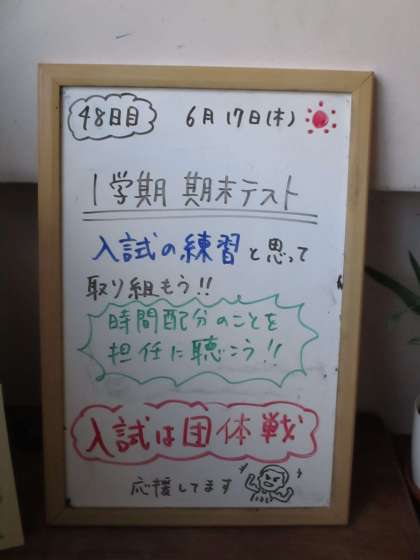 48日目 6月17日(木)
1学期 期末テスト
入試の練習と思って
取り組もう!!
時間配分のことを
担任に聴こう!!
入試は団体戦
応援してます